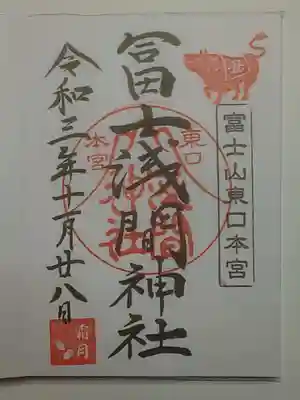 富士山東口本宮
冨士浅間神社
東口
本宮
令和三年十一月廿八日
霜月